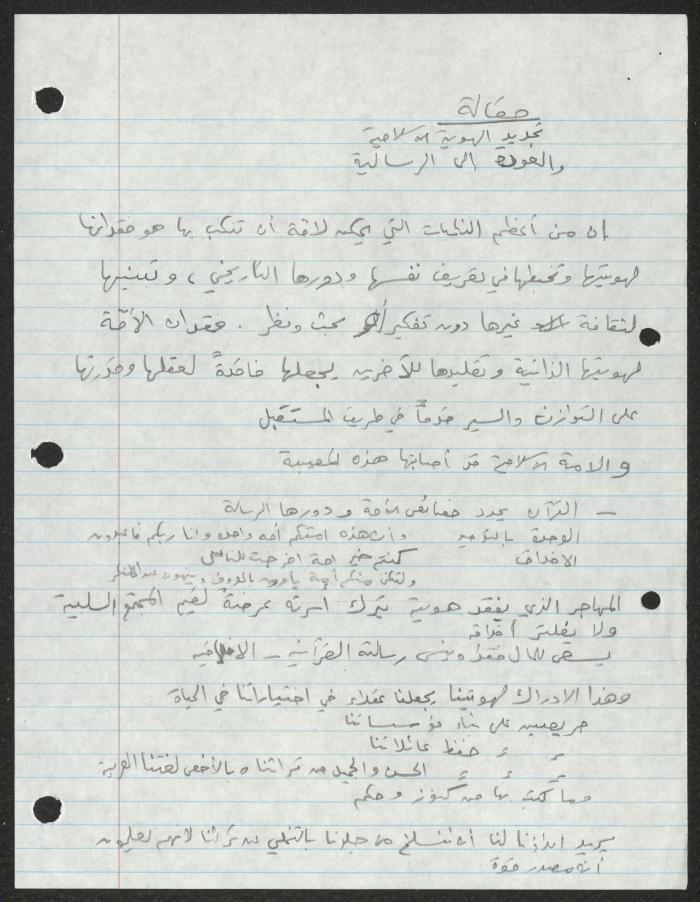 مقالة
تجديد الهوية الاسلامية
والعودة الى الرسالية
إن من أعظم النكبات التي يمكن لأمة أن تنكب بها هو فقدانها
لهويتها وتخبطها في تعريف نفسها ودورها التاريخي، وتبنيها
لثقافة غيرها دون تفكير أو بحث ونظر. ففقدان الأمّة
لهويتها الذاتية وتقليدها للآخرين يجعلها فاقدةً لعقلها وقدرتها
على التوازن والسير قدماً في طريق المستقبل
والامة الاسلامية قد أصابتها هذه المصيبة
- القرآن يحدد خصائص الأمة ودورها الرسالة
الوحدة بالتوحيد وأن هذه امتكم أمة واحدة وانا ربكم فاعبدون
الاخلاق كنتم خير امة اخرجت للناس
ولتكن منكم أمة يأمرون بالمعروف وينهون عن المنكر
المهاجر الذي يفقد هوية يترك اسرته عرضةً لقيم المجتمع السلبية
ولا أخلاقه
يسعى للمال فقط وينسى رسالته القرآنية - الاخلاقية
وهذا الادراك لهويتنا يجعلنا عقلاء في اختياراتنا في الحياة
حريصين على بناء مؤسساتنا
〃 〃 حفظ عائلاتنا
〃 〃 〃 الحسن والجميل من تراثنا وبالأخص لغتنا العربية
وما كتب بها من كنوز وحكم
يريد لنا أن ننسلخ من جلدنا بالتخلي عن تراثنا لأنهم يعلمون
أنه مصدر قوة